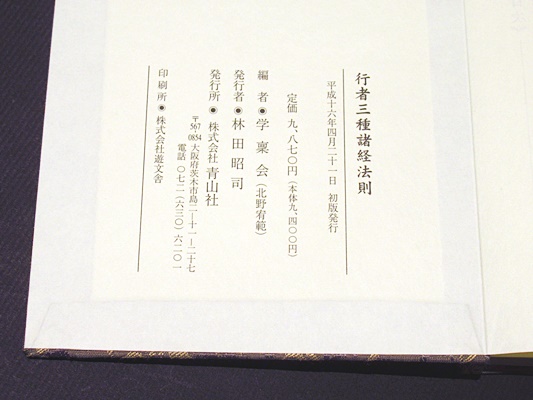 行者三種諸経法則
平成十六年四月二十一日　初版発行
定価　九、八七〇円（本体九、四〇〇円）
編　者◉学稟会（北野宥範）
発行者◉林田昭司
発行所◉株式会社青山社
〒567-0854 大阪府茨木市島二ー十一ー二十七
電話　〇七二（六三〇）六二〇一
印刷所◉株式会社遊文舎